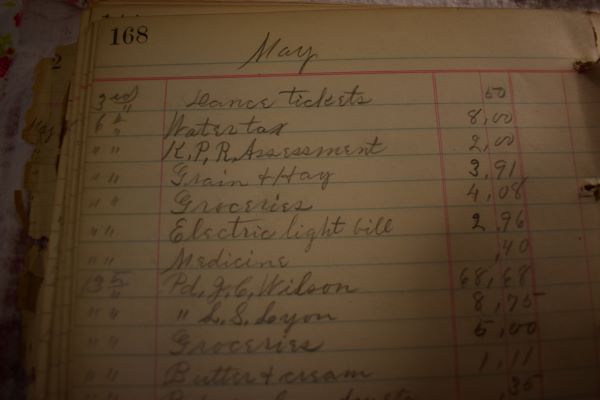 168
May
3rd Dance tickets 50
6th Water tax 8,00
" " K,P,R, Assessment 2,00
" " Grain + Hay 3,91
" " Groceries 4,08
" " Electric light bill 2,96
" " Medicine ,40
13th Pd, J, C, Wilson 68,68
" " " L, S, Lyon 8,75
" " Groceries 5,00
" " Butter + cream 1,11
" " ,35